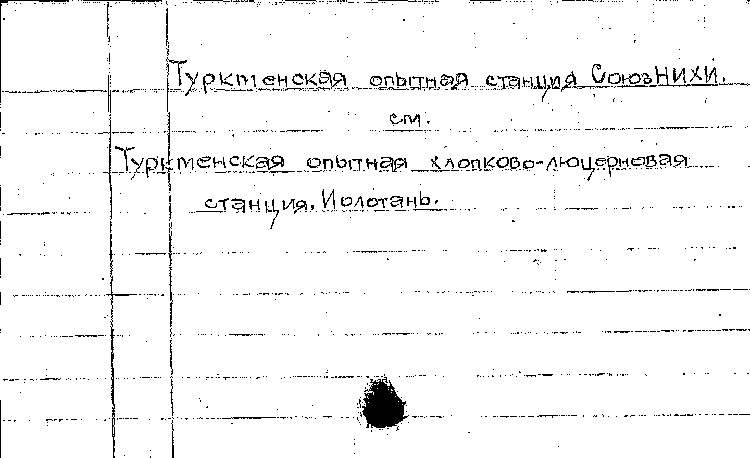 Туркменская опытная станция СоюзНИХИ.
см.
Туркменская опытная хлопково-люцерновая
станция. Иолотань.